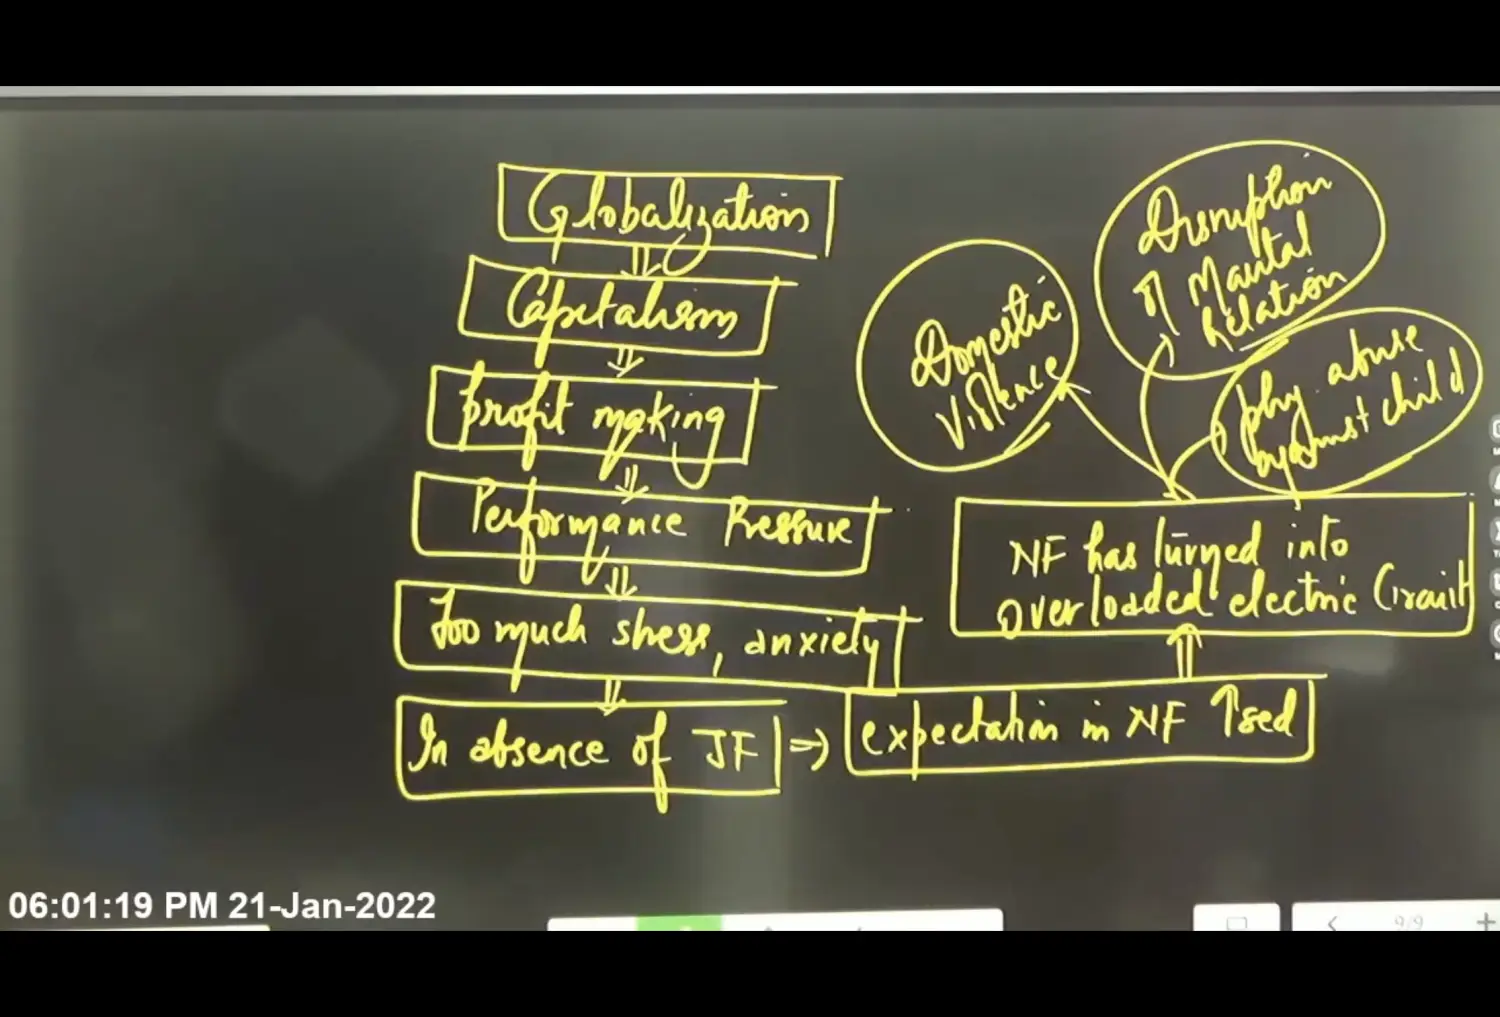 Globalization
Capitalism
profit making
Performance Pressure
Too much stress, anxiety
In absence of JF
expectation in NF ↑sed
NF has turned into
overloaded electric Circuit
Domestic
Violence
Disruption
of Marital
Relation
phy. abuse
against child
06:01:19 PM 21-Jan-2022
9/9